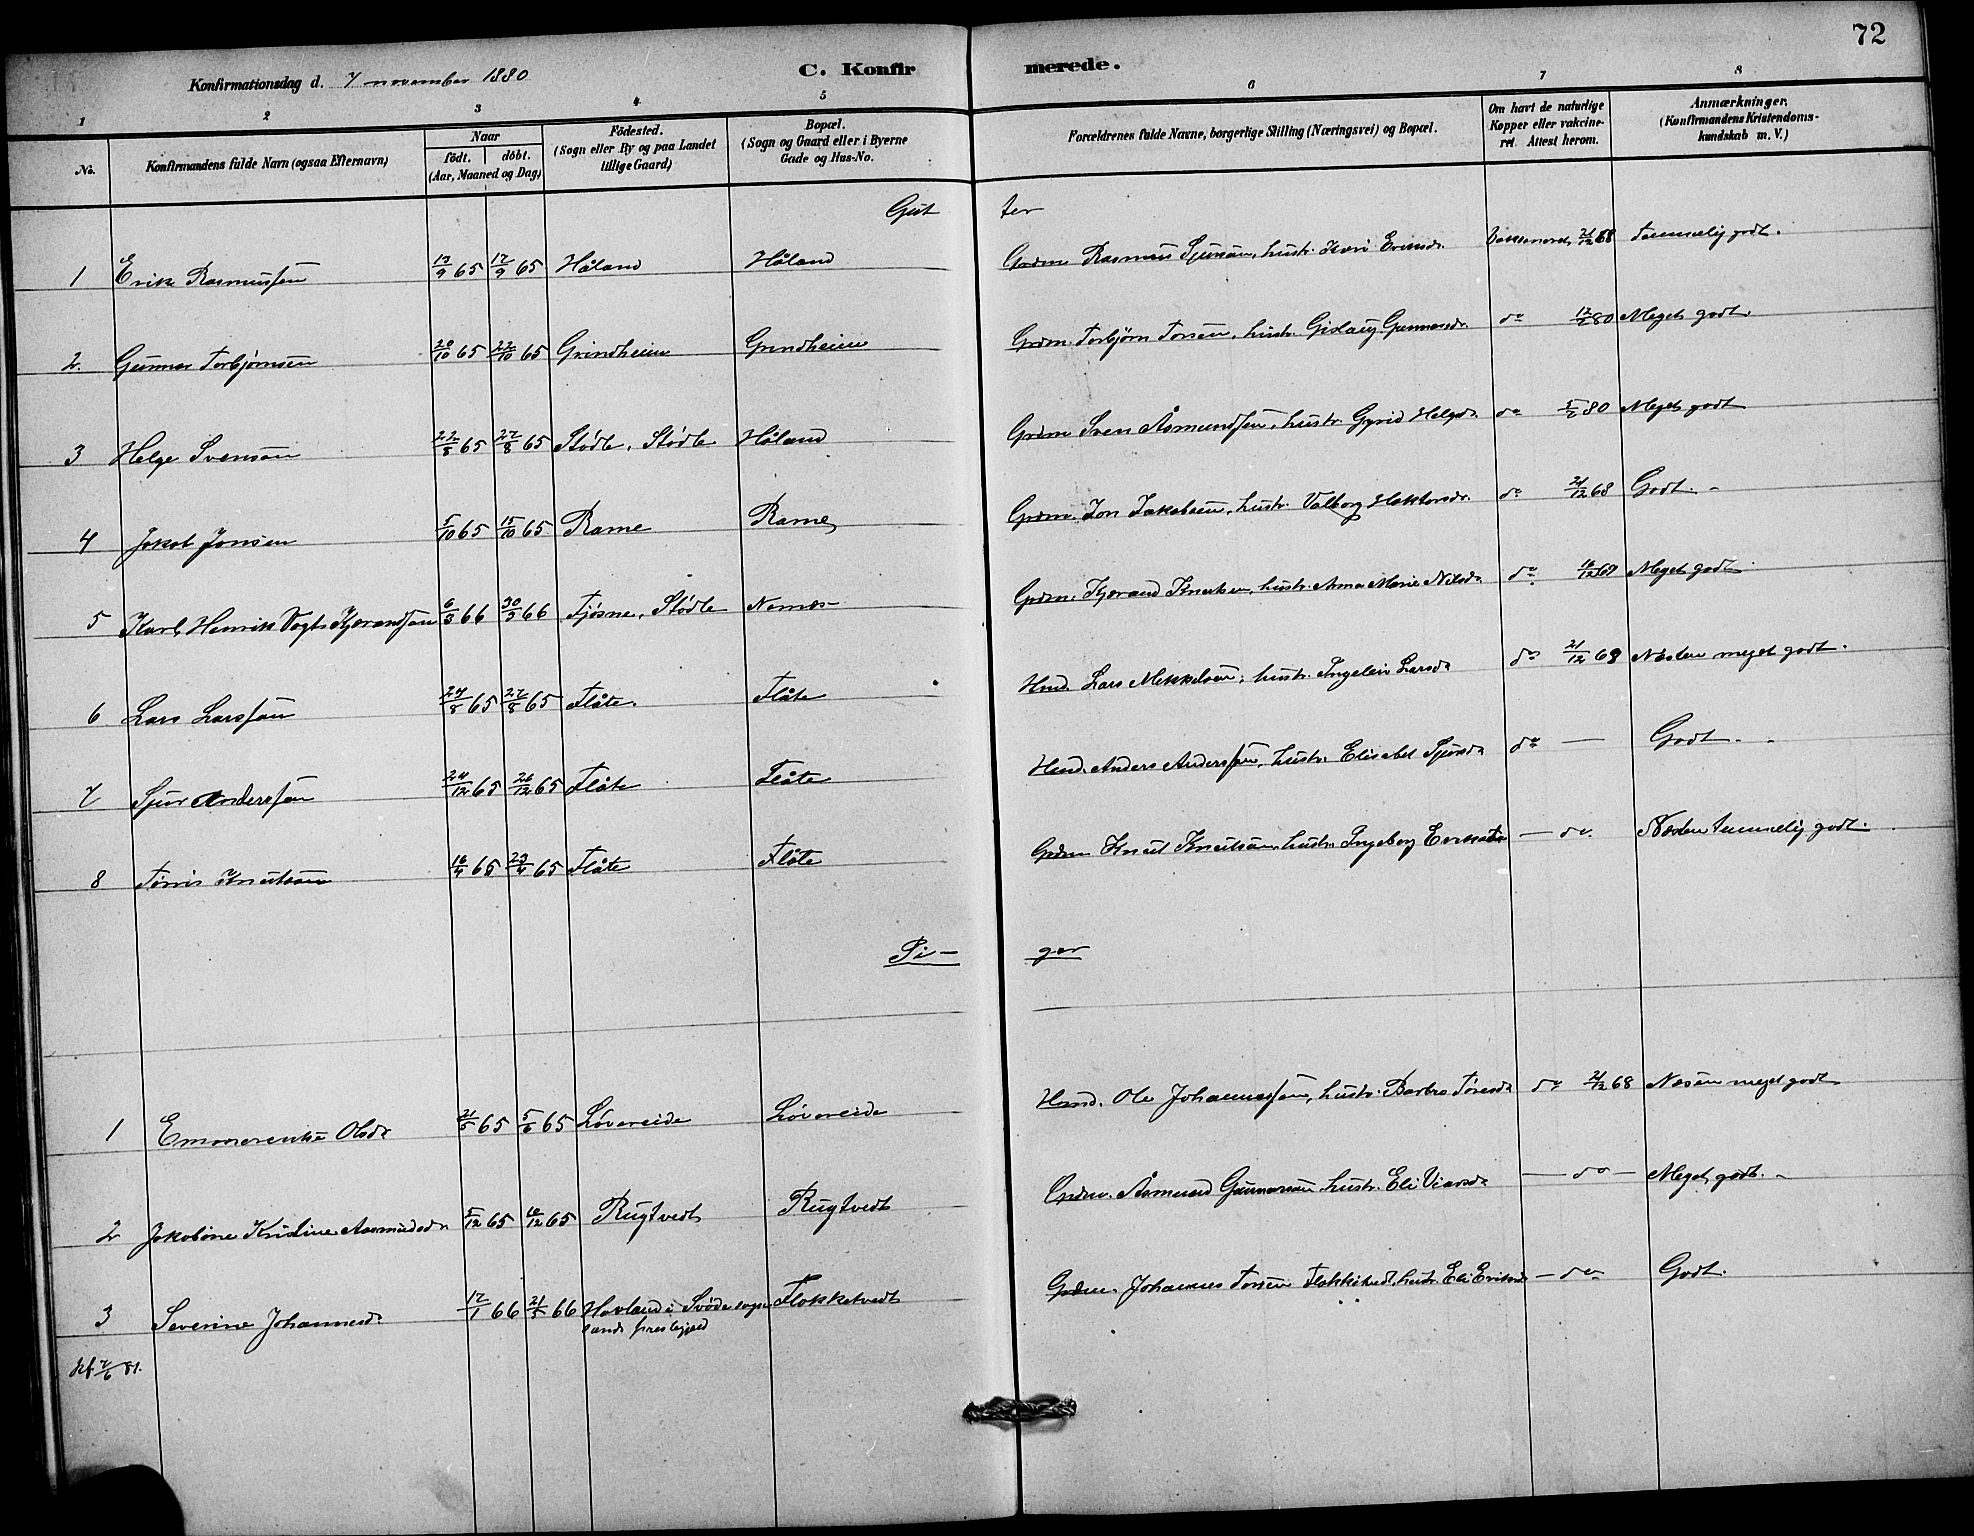 72
Konfirmationsdag d. 7 november 1880 C. Konfirmerede.
1 2 3 4 5 6 7 8
No. Konfirmandens fulde Navn (ogsaa Efternavn) Naar födt. döbt. (Aar, Maaned og Dag) Födested. (Sogn eller By og paa Landet tillige Gaard) Bopæl. (Sogn og Gaard eller i Byerne Gade og Hus-No. Forældrenes fulde Navne, borgerlige Stilling (Næringsvei) og Bopæl. Om havt de naturlige Kopper eller vakcineret. Attest herom. Anmærkninger. (Konfirmandens Kristendomskundskab m. V.)
Gut ter
1 Erik Rasmussen 13/9 65 17/9 65 Håland Håland Grdm Rasmus Sjursøn, hustr. Kari Eriksdr. 21/12 68 Temmelig godt.
2. Gunnar Torbjørnsen 20/10 65 22/10 65 Grindheim Grindheim Grdm. Torbjørn Torsen, hustr. Gislaug Gunnarsdr. do 80 Meget godt.
3 Helge Svensøn 22/8 65 27/8 65 Stödle, Stödle Håland Grdm Sven Åsmundsen, hustr. Gyrid Helgedr. do 80 Meget godt
4 Jakob Jonsen 5/10 65 15/10 65 Rame Rame Grdm. Jon Jakobsen, hustr. Valborg do 21/12 68 Godt. -
5 Karl Henrik Vogt Kjærandsen 6/3 66 30/3 66 Tjøsne, Stødle Nernes Grdm. Kjærand Knutsen, hustr. Anna Marie Nilsdr do Meget godt
6 Lars Larssøn 24/8 65 27/8 65 Flåte. Flåte Hmd. Lars Mikkelsen, hustr. Ingeleiv Larsdr do 21/12 68 Næsten meget godt.
7 Sjur Anderssøn 24/12 65 26/12 65 Flåte Flåte Hmd. Anders Anderssøn, hustr. Elisabet Sjursdr do — Godt. -
8 Tørris Knutsen 16/4 65 23/4 65 Flåte Flåte Grdm Knut Knutsøn, hustr. Ingeborg — do. Næsten temmelig godt.
Pi- ger
1 Emmerentse Olsdr 21/5 65 5/6 65 Løvereide Løvereide Hmd. Ole Johannessen, hustr. Barbro Tøresdr do 21/12 68 Næsten meget godt
2 Jakobine Kristine Aasmundsdr 5/12 65 10/12 65 Rugtvedt Rugtvedt Grdm. Åsmund Gunnarsøn, hustr. Eli — do — Meget godt. -
3 Severine Johannesdr 17/1 66 21/5 66 Hovland i sogn Flokketvedt Grdm. Johannes Torsen Flokketvedt, hustr. Eli Eriksdr — do Godt.
sands prestegjeld
7/6 81.